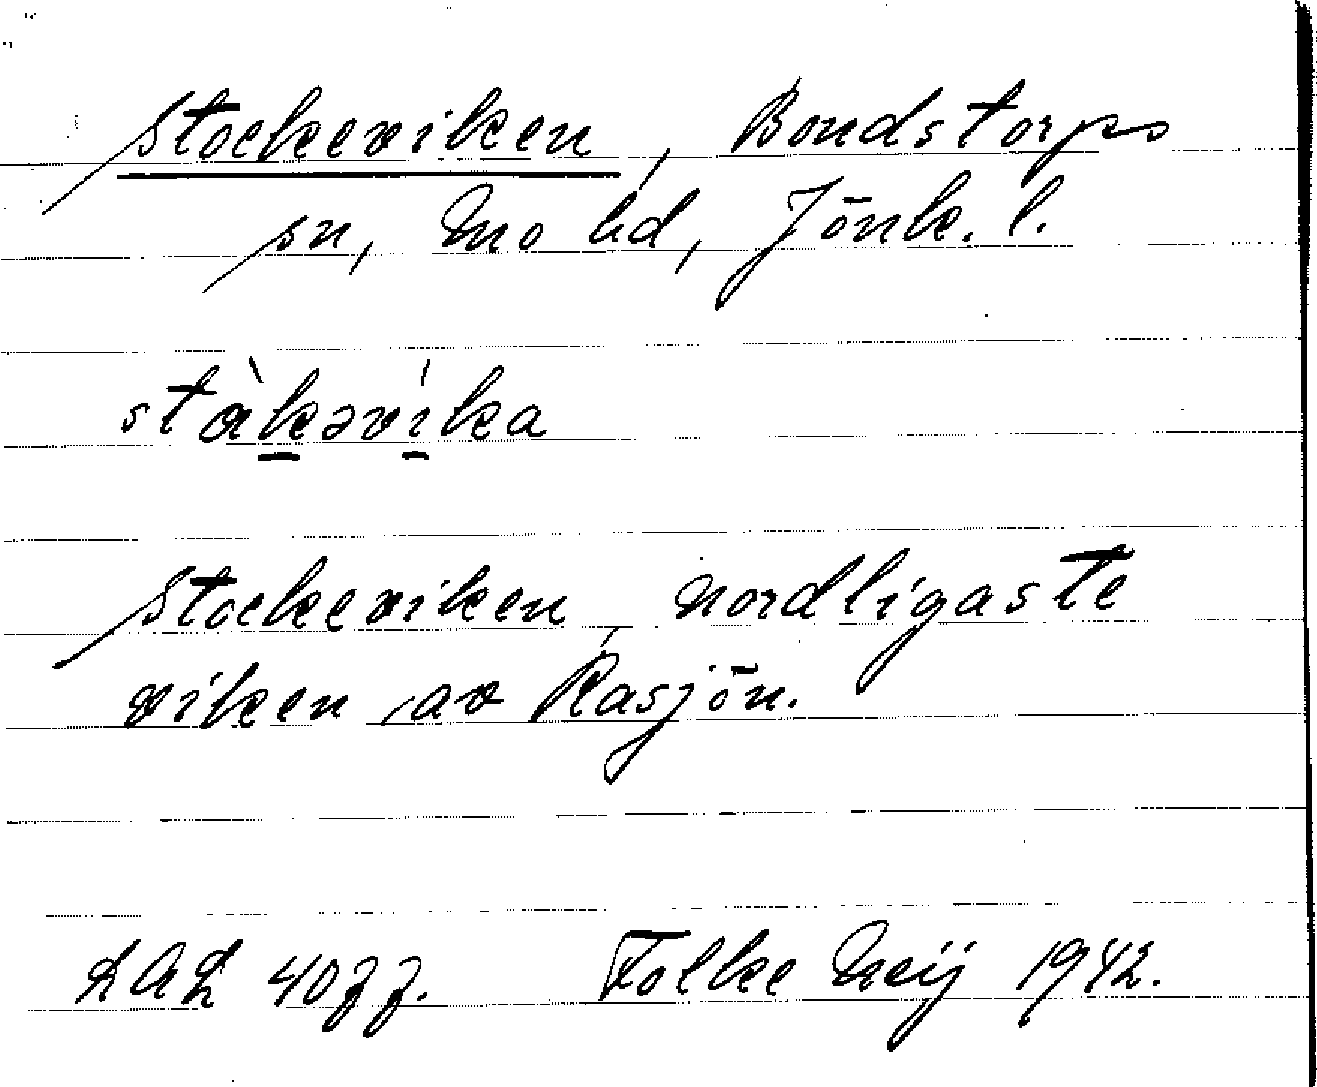 Stockeviken, Bondstorps
sn, Mo hd, Jönk. l.
stàkəvíka
Stockeviken, nordligaste
viken av Rasjön.
LAL 4077. Folke Meij 1942.